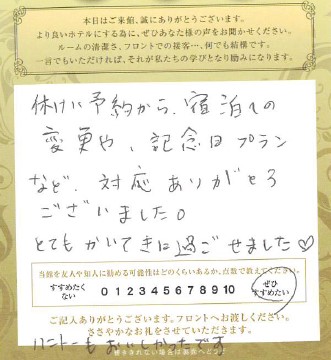 本日はご来館、誠にありがとうございます。
より良いホテルにする為に、ぜひあなた様の声をお聞かせください。
ルームの清潔さ、フロントでの接客…何でも結構です。
一言でもいただければ、それが私たちの学びとなり励みになります。
休けい予約から、宿泊への
変更や、記念日プラン
など、対応ありがとう
ございました。
とてもかいてきに過ごせました♡
当館を友人や知人に勧める可能性はどのくらいあるか、点数で教えてください。
すすめたくない 0 1 2 3 4 5 6 7 8 9 10 ぜひすすめたい
ご記入ありがとうございます。フロントへお渡しください。
ささやかなお礼をさせていただきます。
ハニトーもおいしかったです